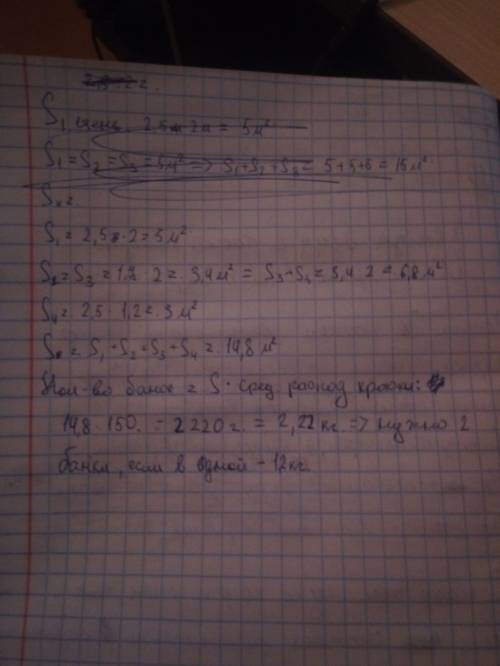 S₁ 2,5 · 2 = 5 м²
S₁ = S₂ = S₃ = 5 м² => S₁ + S₂ + S₃ = 5 + 5 + 5 = 15 м²
Sₓ =
S₁ = 2,5 · 2 = 5 м²
S₂ = S₃ = 1,7 · 2 = 3,4 м² = S₃ + S₄ = 3,4 · 2 = 6,8 м²
S₄ = 2,5 · 1,2 = 3 м²
= S₁ + S₂ + S₃ + S₄ = 14,8 м²
Кол-во банок = S · сред расход краски:
14,8 · 150 = 2 220 г. = 2,22 кг => нужно 2
банки, если в одной - 12 кг.